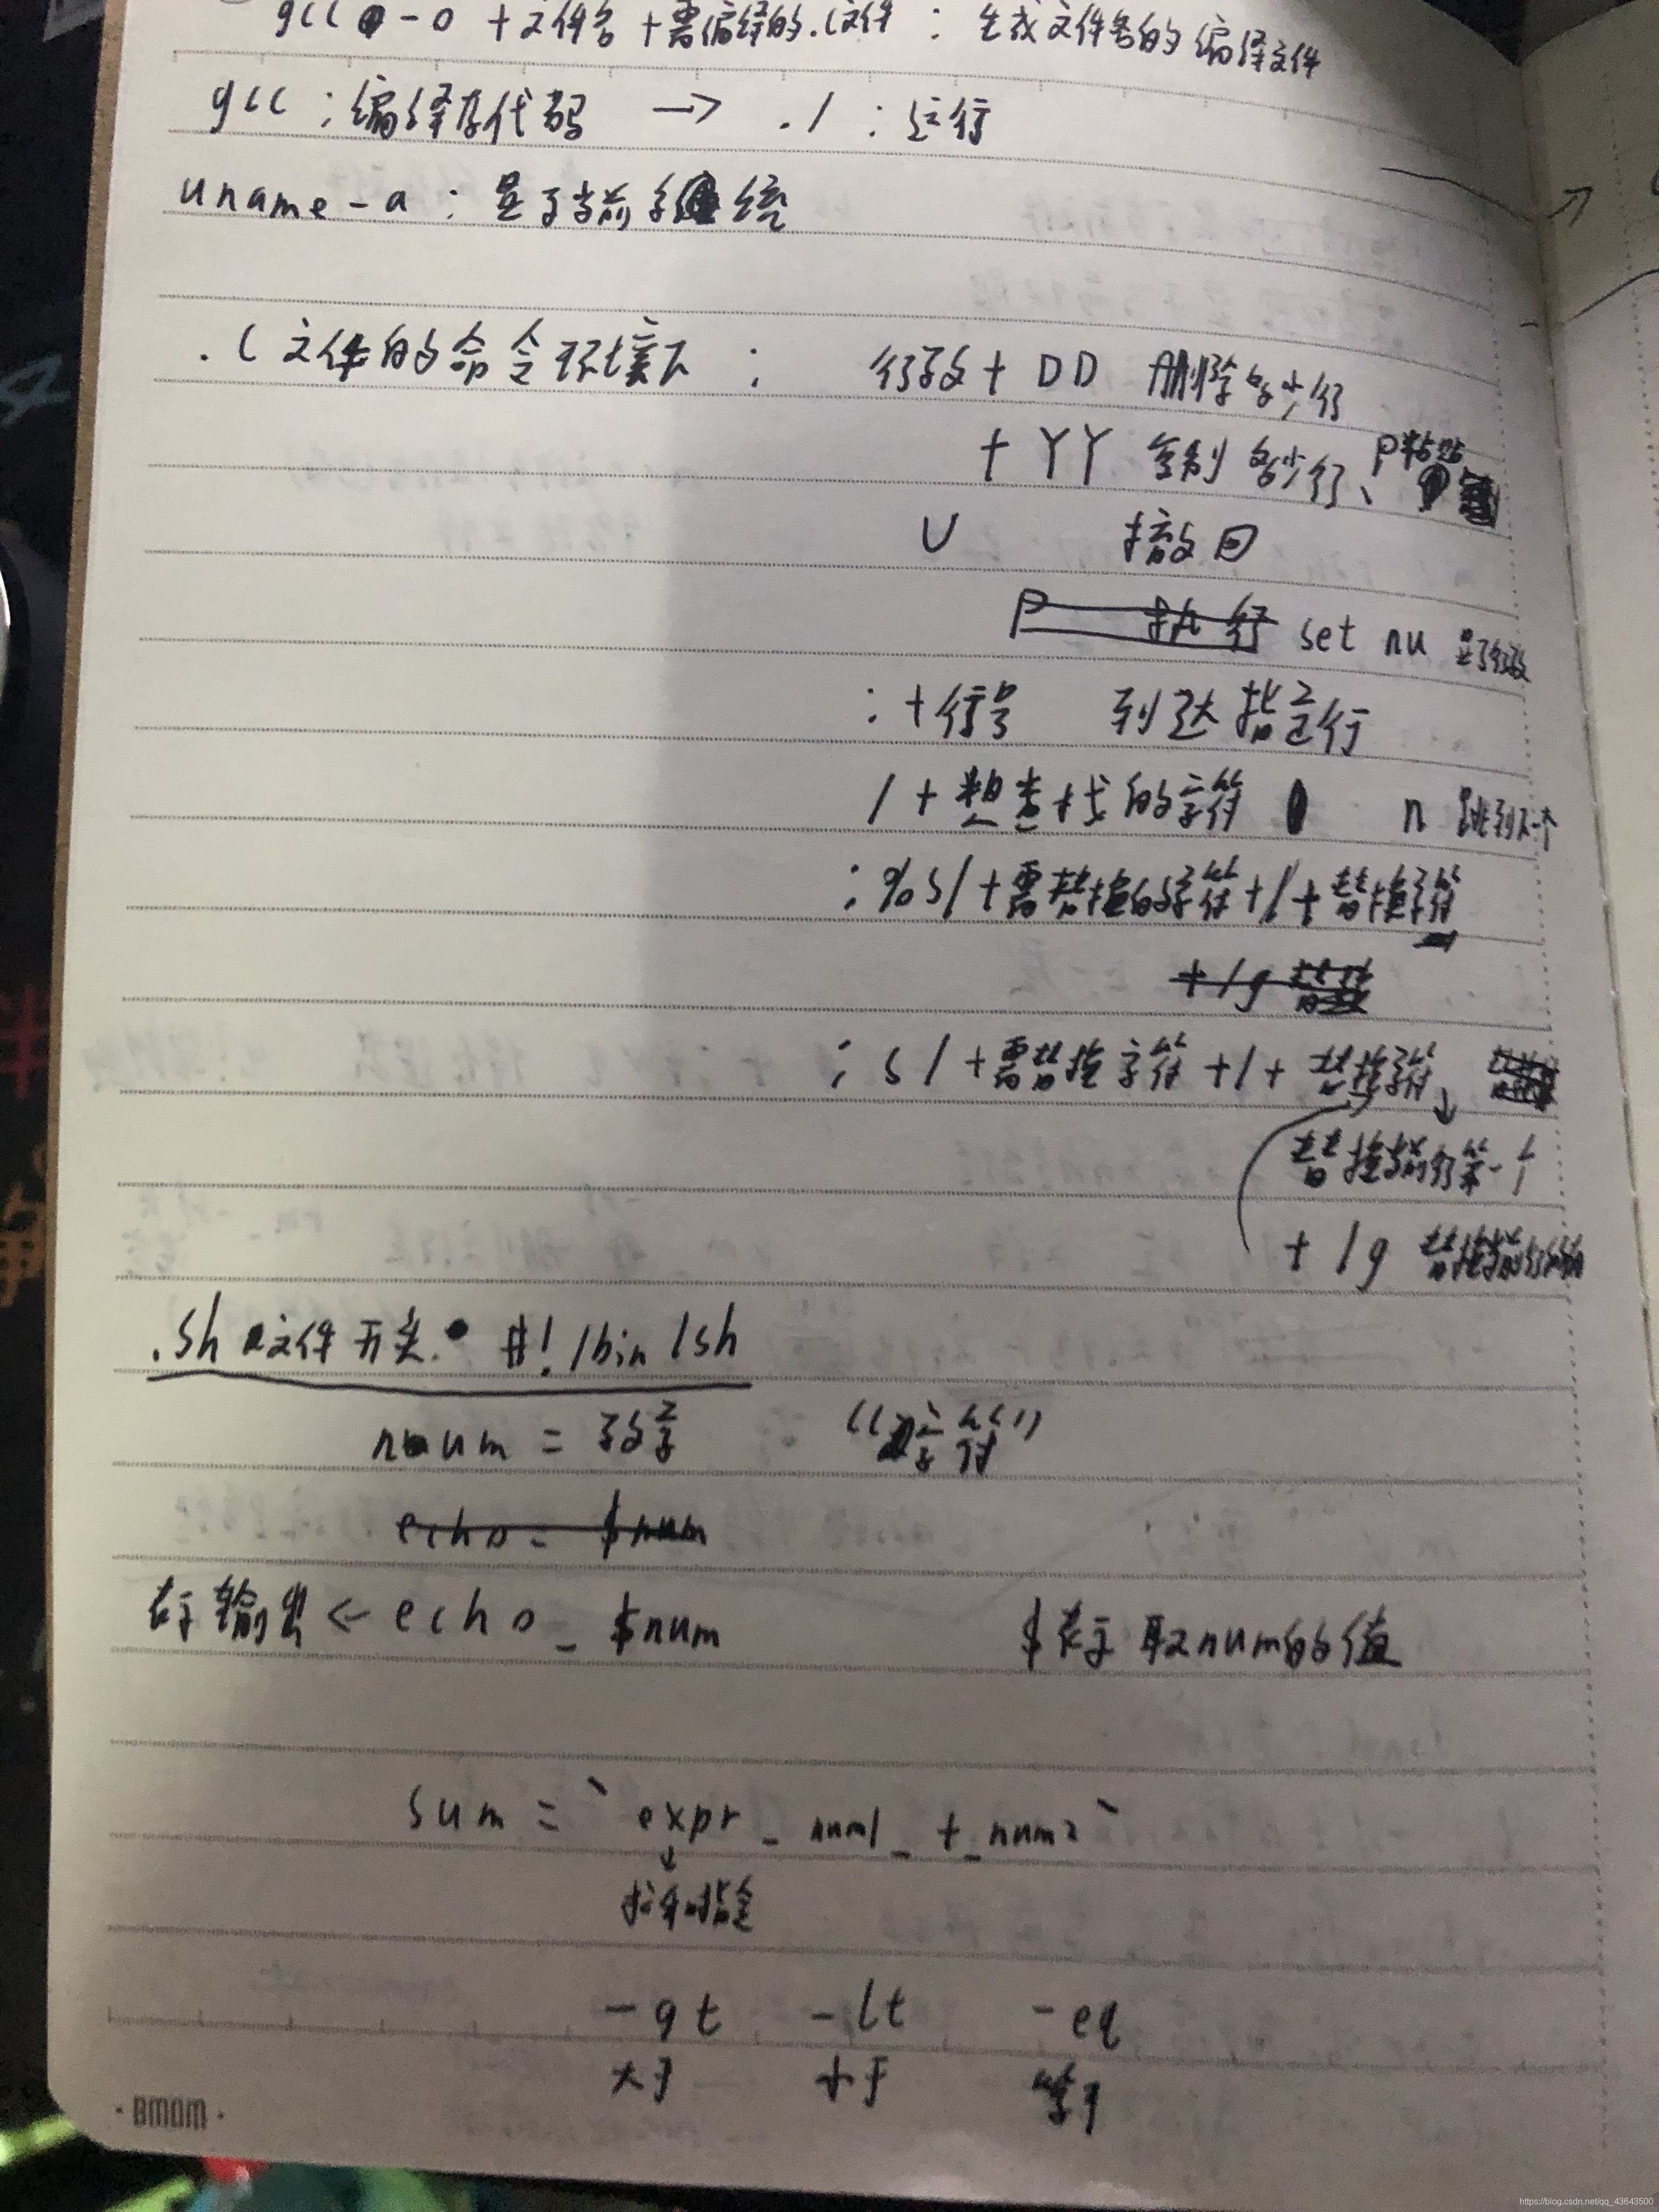 gcc -o +文件名 +需编译的.c文件 : 生成文件名的编译文件
gcc : 编译及代码 → ./ : 运行
uname -a : 显示当前系统
.c 文件的命令环境下 : 行数 + DD 删除多少行
+ YY 复制多少行、P粘贴
U 撤回
P 执行 set nu 显示行数
: +行号 到达指定行
/ + 想查找的字符 n 跳到下一个
: %s/ +需替换的字符 +/+ 替换字符
+ /g
: s / +需替换字符 +/+ 替换字符 ↓
替换当前行第一个
+ /g 替换当前行
.sh 文件开头. #! /bin /sh
num = 数字 "字符"
echo = $num
表示输出 ← echo _ $num $表示取num的值
sum = ` expr _ num1 _ + _ num2 `
↓
-gt -lt -eq
大于 小于 等于
· BMOM ·
https://blog.csdn.net/qq_43643500